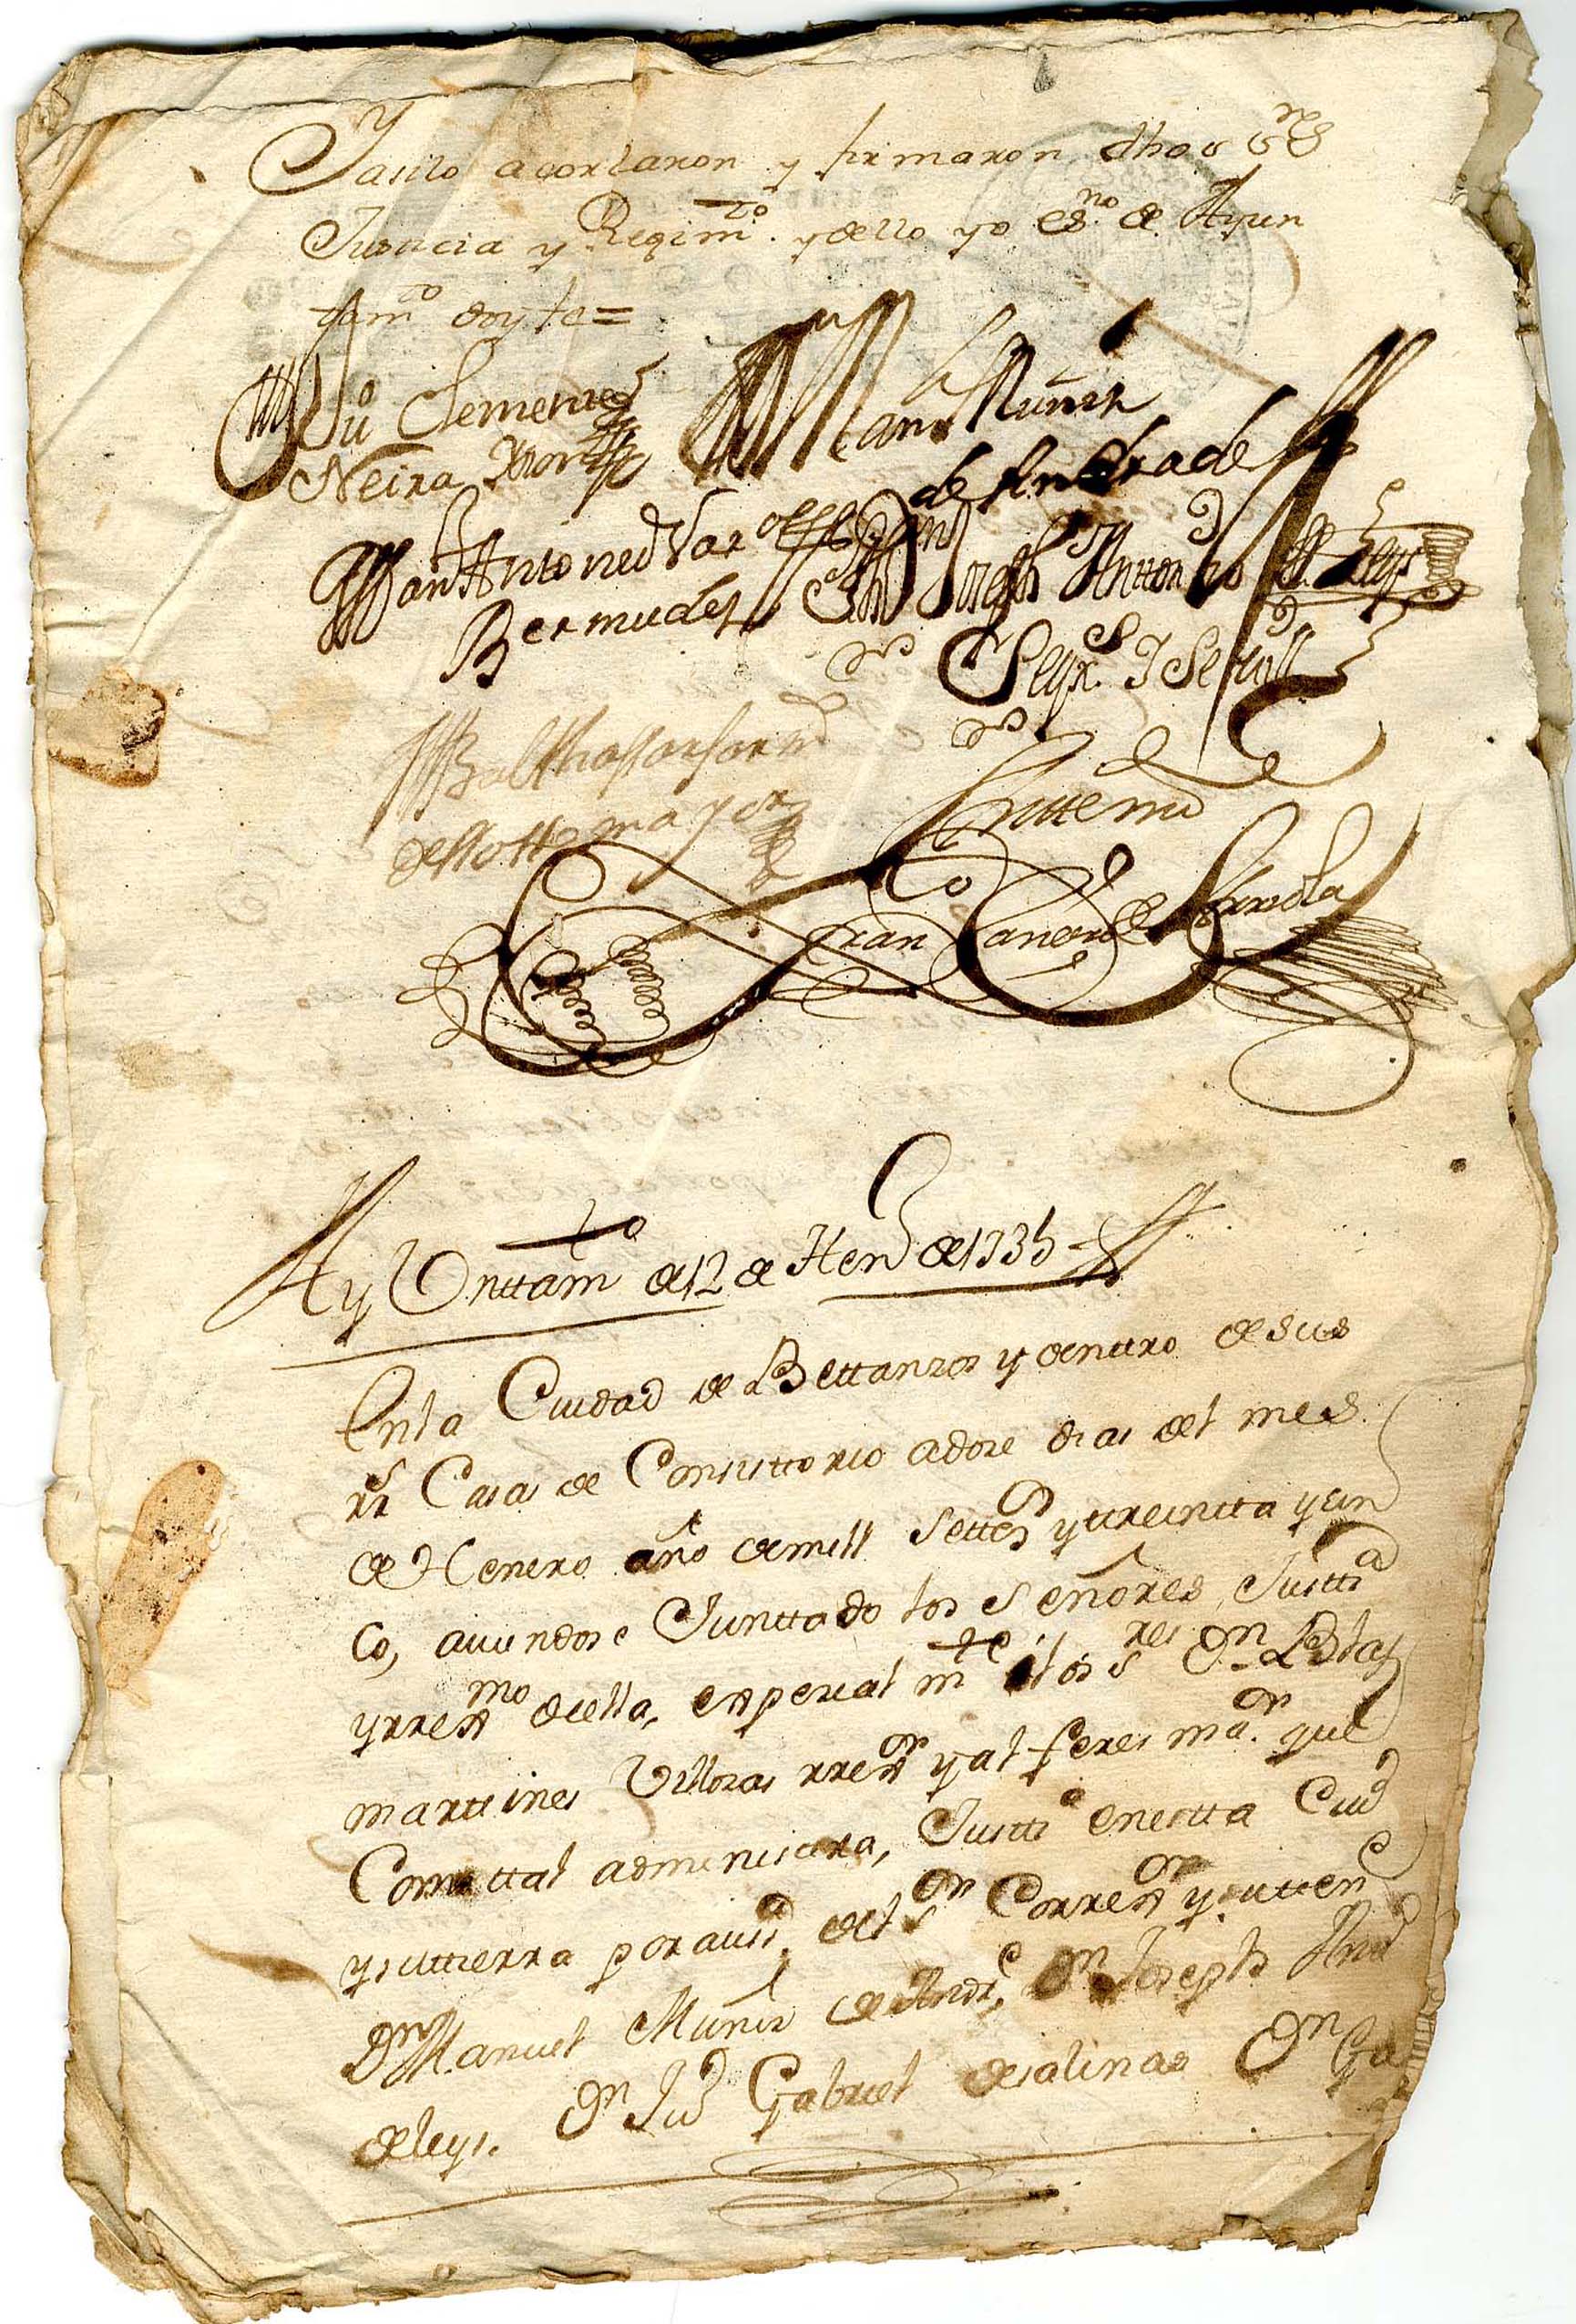 Y asilo acordaron y firmaron dhos s.res
Justicia y Regim.to y dello yo es.no de Ayun
tam.to doy fe=
Ju.o Clemente
Neira
Man. Muñiz
de Andrade
Juan Anto
Bermudez
Joseph Antonio
de Leys
Balthassar
de Sottomayor
Antte mi
Fran
Ay Unttam.to de 12 de Hen.o de 1735
Enla Ciudad de Bettanzos y denttro de sus
rs Casas de Consisttorio adoze dias del mes
de Henero año demill settes.os y ttreintta y cin
co, aviendose Junttado los Señores Justti.a
yrrex.mo de ella, especialm.te los s.res D.n Blas
marttines Villozas rrex.or y alferes ma.or que
Comottal administtra, Justti.a enestta Ciud.d
ysuttierra por ausi.a del s.or Correx.or y suttên.e
D.n Manuel Muñiz de Andr.e, D.n Joseph Antt.o
deleys. D.n Ju.o Gabriel desalinas D.n Ga